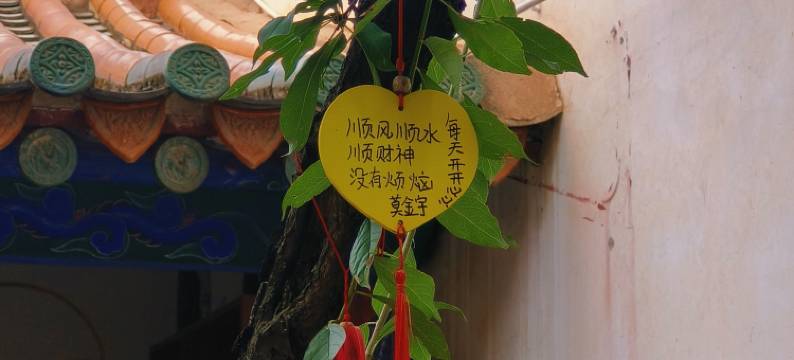 顺风顺水
顺财神
没有烦恼
莫金宇
每天开开心心